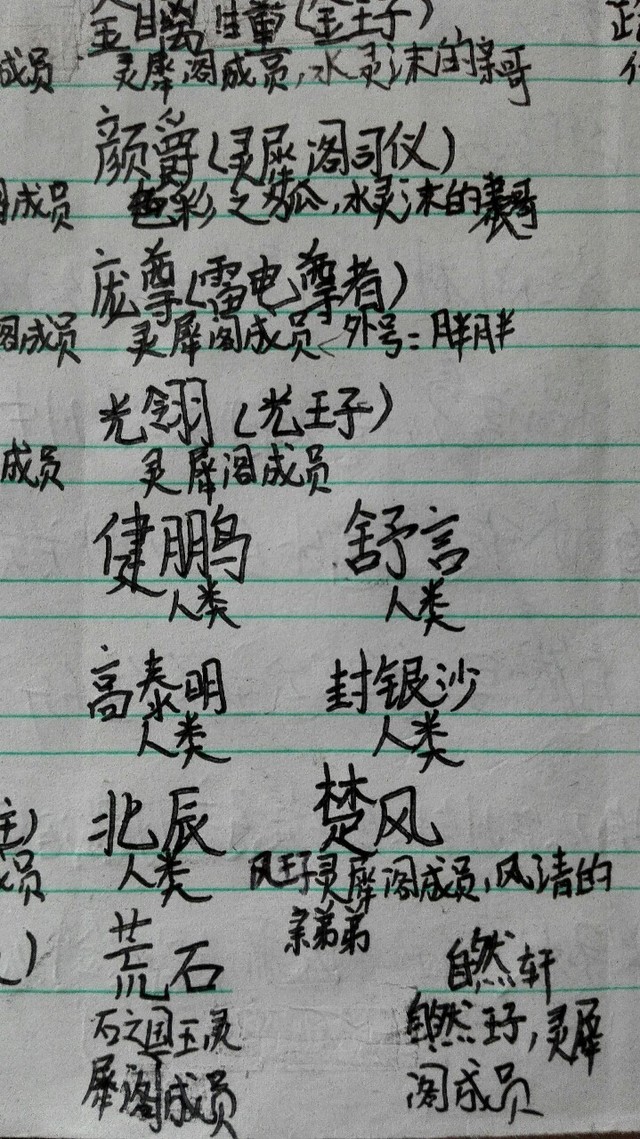 金离瞳(金王子)
成员 灵犀阁成员,水灵沫的亲哥
颜爵(灵犀阁司仪)
阁成员 色彩之瓜,水灵沫的表哥
庞尊(雷电尊者)
阁成员 灵犀阁成员 外号:胖胖
光翎(光王子)
成员 灵犀阁成员
健鹏 舒言
人类 人类
高泰明 封银沙
人类 人类
北辰 楚风
人类 风王子灵犀阁成员,风清的
亲弟弟
荒石 自然轩
石之国王灵 自然王子,灵犀
犀阁成员 阁成员